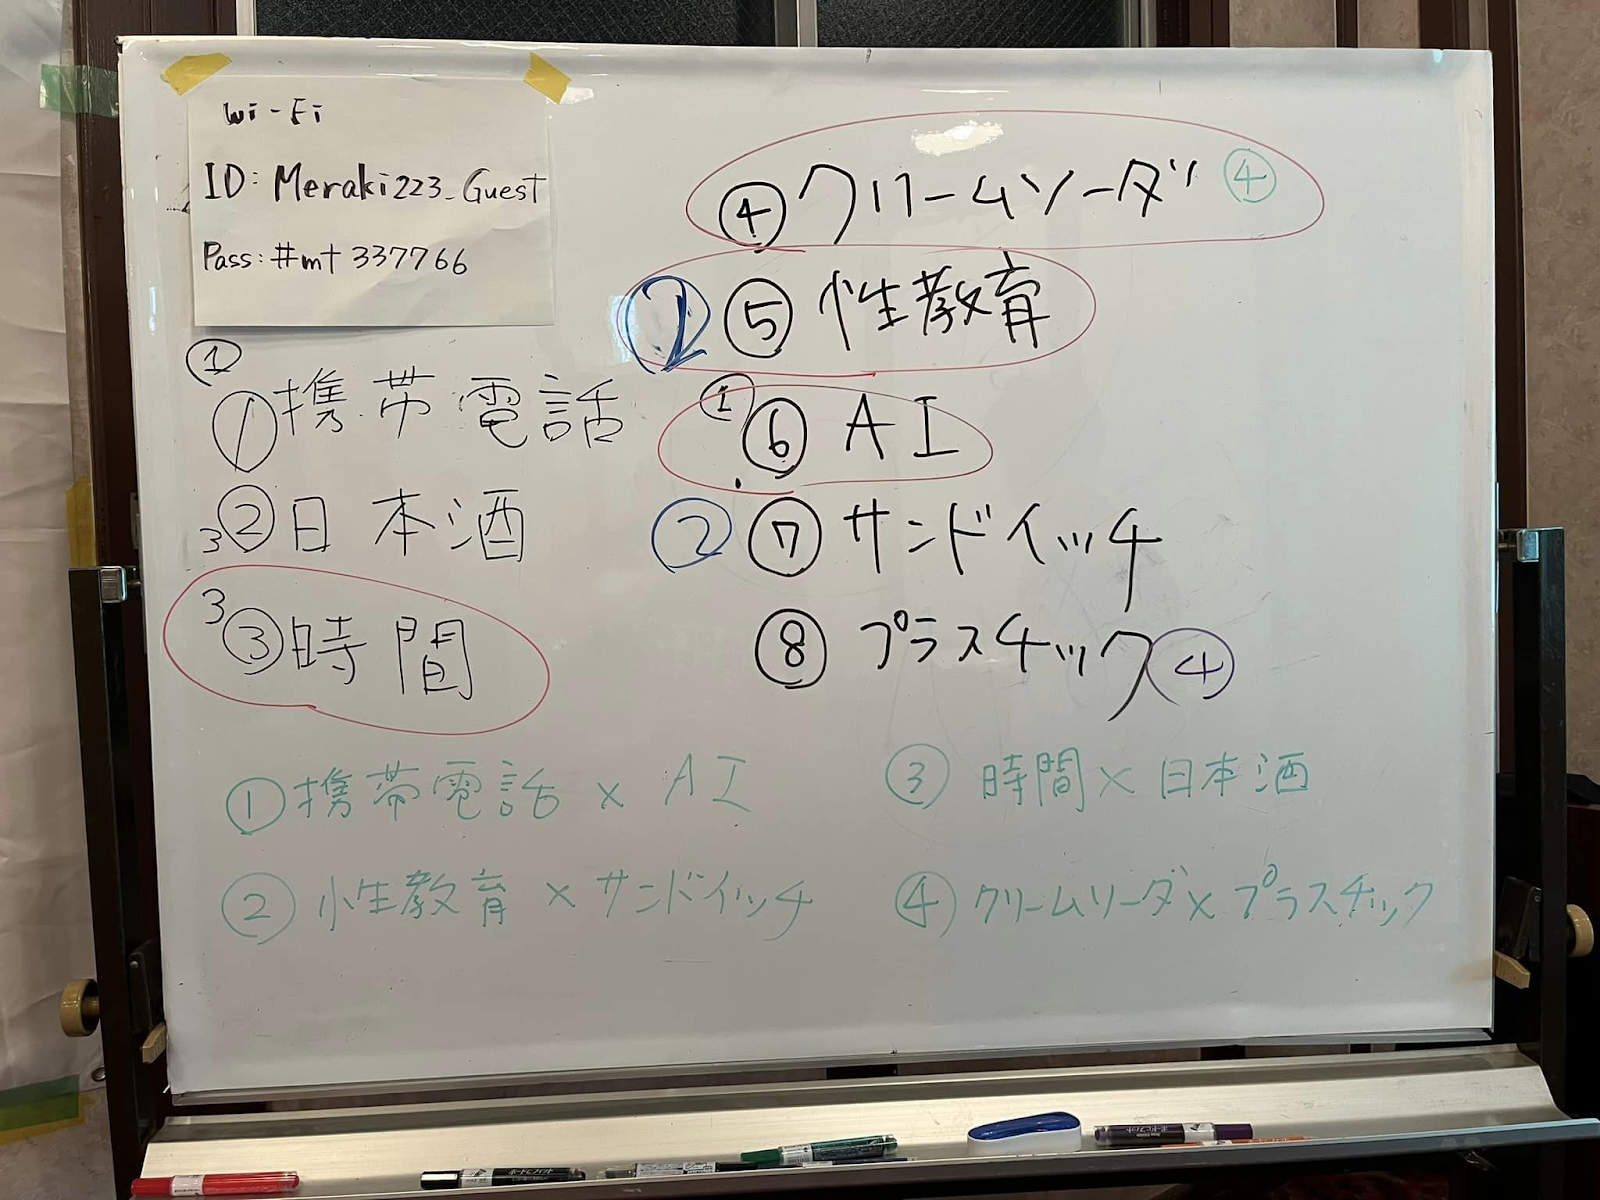 Wi-Fi
ID: Meraki223_Guest
Pass: #mt337766
① ① 携帯電話
3 ② 日本酒
3 ③ 時間
④ クリームソーダ ④
② ⑤ 性教育
① ⑥ AI
② ⑦ サンドイッチ
⑧ プラスチック ④
① 携帯電話 × AI
② 性教育 × サンドイッチ
③ 時間 × 日本酒
④ クリームソーダ × プラスチック